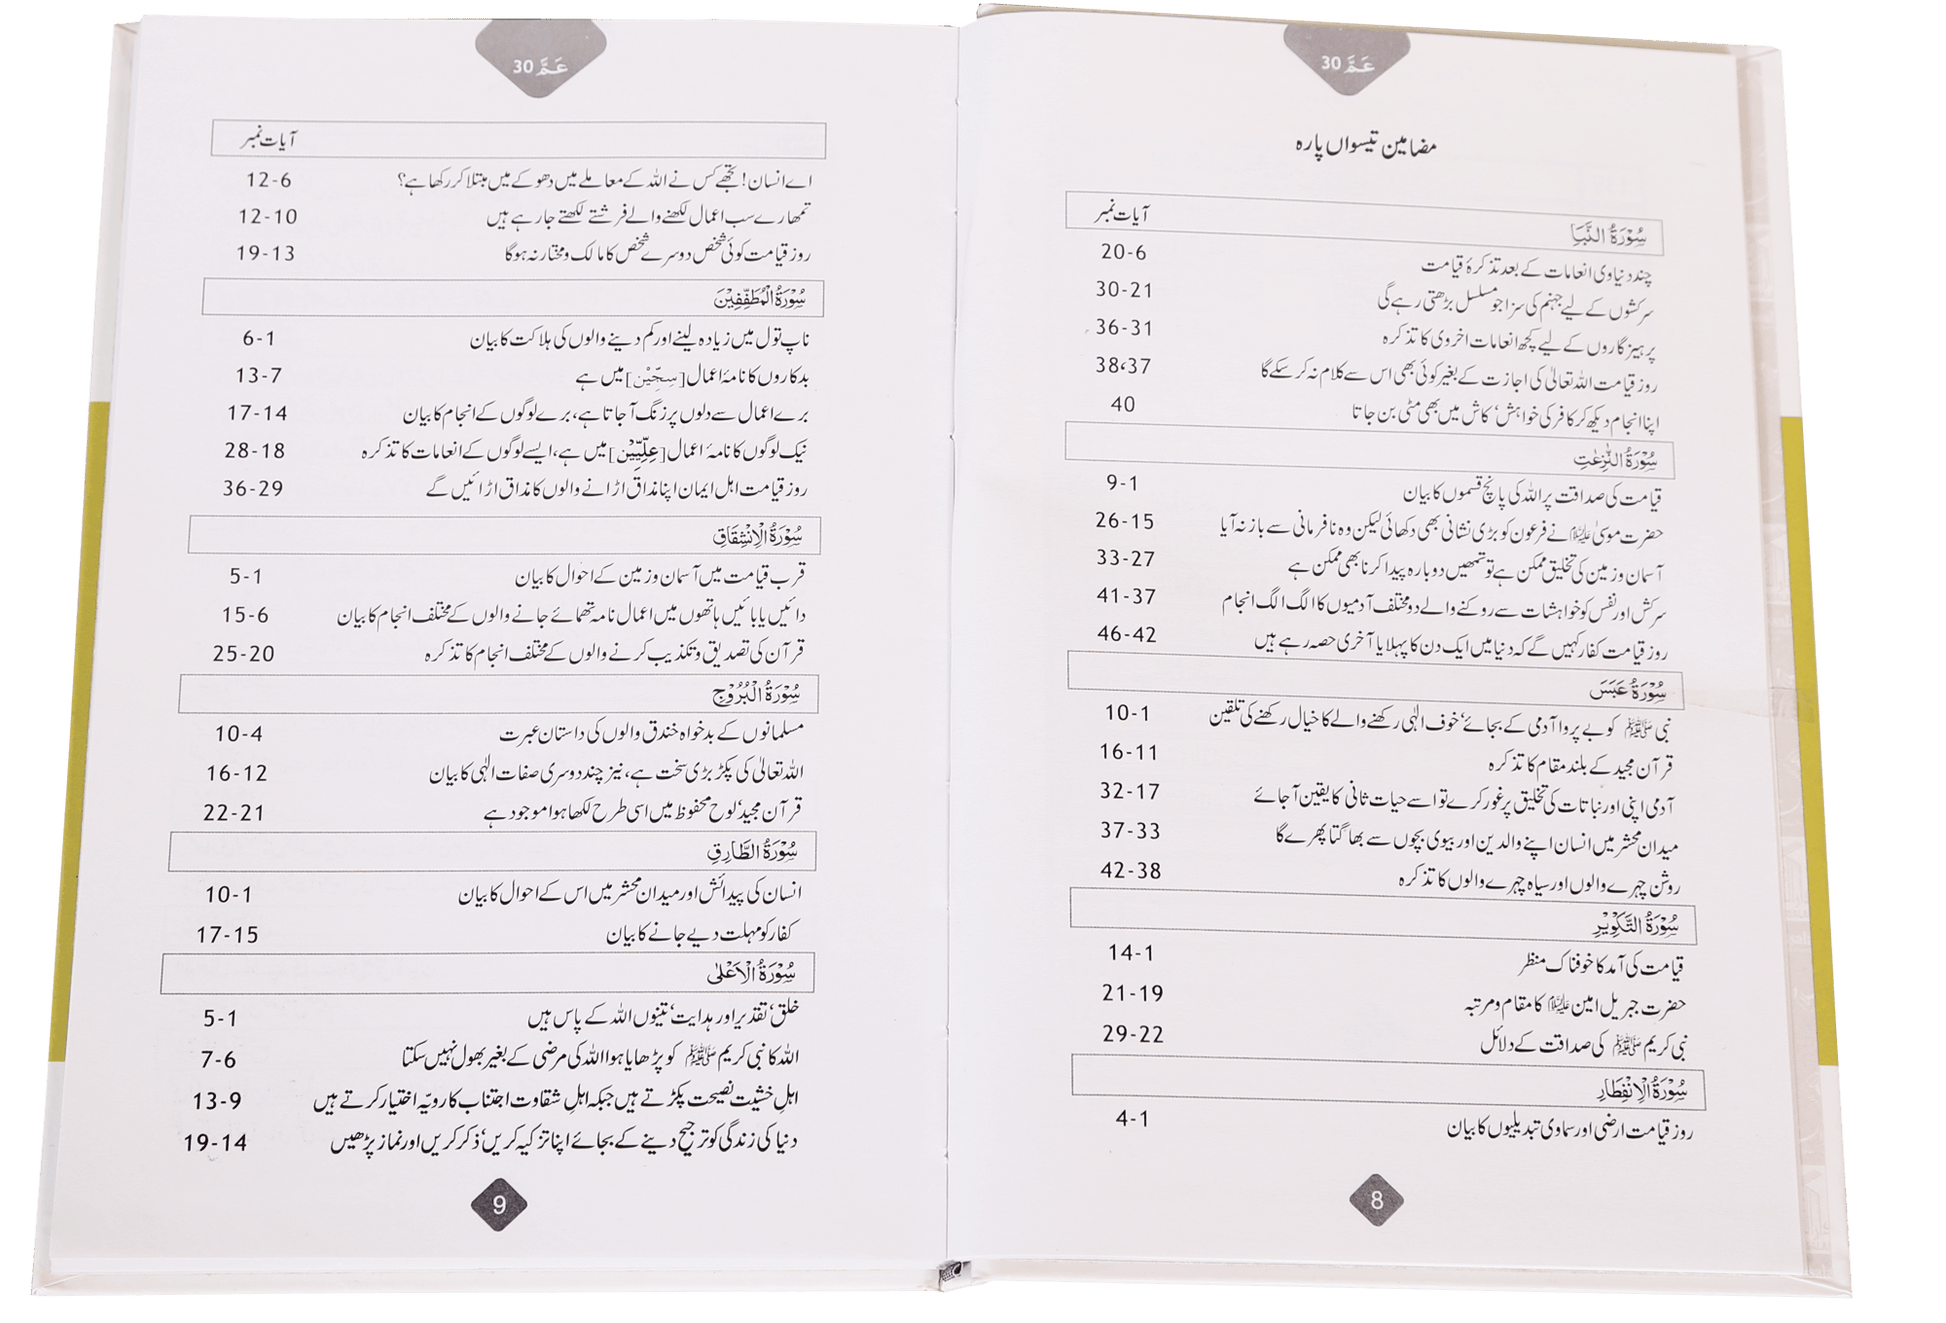 عَمَّ 30
مضامین تیسواں پارہ
آیات نمبر
سُوْرَةُ النَّبَإِ
چند دنیاوی انعامات کے بعد تذکرۂ قیامت 20-6
سرکشوں کے لیے جہنم کی سزا جو مسلسل بڑھتی رہے گی 30-21
پرہیزگاروں کے لیے کچھ انعامات اخروی کا تذکرہ 36-31
روز قیامت اللہ تعالیٰ کی اجازت کے بغیر کوئی بھی اس سے کلام نہ کر سکے گا 38،37
اپنا انجام دیکھ کر کافر کی خواہش ’کاش میں بھی مٹی بن جاتا 40
سُوْرَةُ النّٰزِعٰتِ
قیامت کی صداقت پر اللہ کی پانچ قسموں کا بیان 9-1
حضرت موسیٰ علیہ السلام نے فرعون کو بڑی نشانی بھی دکھائی لیکن وہ نافرمانی سے باز نہ آیا 26-15
آسمان و زمین کی تخلیق ممکن ہے تو تمھیں دوبارہ پیدا کرنا بھی ممکن ہے 33-27
سرکش اور نفس کو خواہشات سے روکنے والے دو مختلف آدمیوں کا الگ الگ انجام 41-37
روز قیامت کفار کہیں گے کہ دنیا میں ایک دن کا پہلا یا آخری حصہ رہے ہیں 46-42
سُوْرَةُ عَبَسَ
نبی ﷺ کو بے پروا آدمی کے بجائے ’خوف الٰہی رکھنے والے کا خیال رکھنے کی تلقین 10-1
قرآن مجید کے بلند مقام کا تذکرہ 16-11
آدمی اپنی اور نباتات کی تخلیق پر غور کرے تو اسے حیات ثانی کا یقین آ جائے 32-17
میدان محشر میں انسان اپنے والدین اور بیوی بچوں سے بھاگتا پھرے گا 37-33
روشن چہرے والوں اور سیاہ چہرے والوں کا تذکرہ 42-38
سُوْرَةُ التَّكْوِيْرِ
قیامت کی آمد کا خوفناک منظر 14-1
حضرت جبریل امین علیہ السلام کا مقام و مرتبہ 21-19
نبی کریم ﷺ کی صداقت کے دلائل 29-22
سُوْرَةُ الْاِنْفِطَارِ
روز قیامت ارضی اور سماوی تبدیلیوں کا بیان 4-1
8
عَمَّ 30
آیات نمبر
اے انسان! تجھے کس نے اللہ کے معاملے میں دھوکے میں مبتلا کر رکھا ہے؟ 12-6
تمھارے سب اعمال لکھنے والے فرشتے لکھتے جا رہے ہیں 12-10
روز قیامت کوئی شخص دوسرے شخص کا مالک و مختار نہ ہوگا 19-13
سُوْرَةُ الْمُطَفِّفِيْنَ
ناپ تول میں زیادہ لینے اور کم دینے والوں کی ہلاکت کا بیان 6-1
بدکاروں کا نامۂ اعمال [سِجِّيْن] میں ہے 13-7
برے اعمال سے دلوں پر زنگ آ جاتا ہے، برے لوگوں کے انجام کا بیان 17-14
نیک لوگوں کا نامۂ اعمال [عِلِّيِّيْن] میں ہے، ایسے لوگوں کے انعامات کا تذکرہ 28-18
روز قیامت اہل ایمان اپنا مذاق اڑانے والوں کا مذاق اڑائیں گے 36-29
سُوْرَةُ الْاِنْشِقَاقِ
قرب قیامت میں آسمان و زمین کے احوال کا بیان 5-1
دائیں یا بائیں ہاتھوں میں اعمال نامہ تھمائے جانے والوں کے مختلف انجام کا بیان 15-6
قرآن کی تصدیق و تکذیب کرنے والوں کے مختلف انجام کا تذکرہ 25-20
سُوْرَةُ الْبُرُوْجِ
مسلمانوں کے بدخواہ خندق والوں کی داستان عبرت 10-4
اللہ تعالیٰ کی پکڑ بڑی سخت ہے، نیز چند دوسری صفات الٰہی کا بیان 16-12
قرآن مجید ’لوح محفوظ میں اسی طرح لکھا ہوا موجود ہے 22-21
سُوْرَةُ الطَّارِقِ
انسان کی پیدائش اور میدان محشر میں اس کے احوال کا بیان 10-1
کفار کو مہلت دیے جانے کا بیان 17-15
سُوْرَةُ الْاَعْلٰى
خلق ’تقدیر اور ہدایت ’تینوں اللہ کے پاس ہیں 5-1
اللہ کا نبی کریم ﷺ کو پڑھایا ہوا اللہ کی مرضی کے بغیر بھول نہیں سکتا 7-6
اہلِ خشیت نصیحت پکڑتے ہیں جبکہ اہلِ شقاوت اجتناب کا رویّہ اختیار کرتے ہیں 13-9
دنیا کی زندگی کو ترجیح دینے کے بجائے اپنا تزکیہ کریں ’ذکر کریں اور نماز پڑھیں 19-14
9